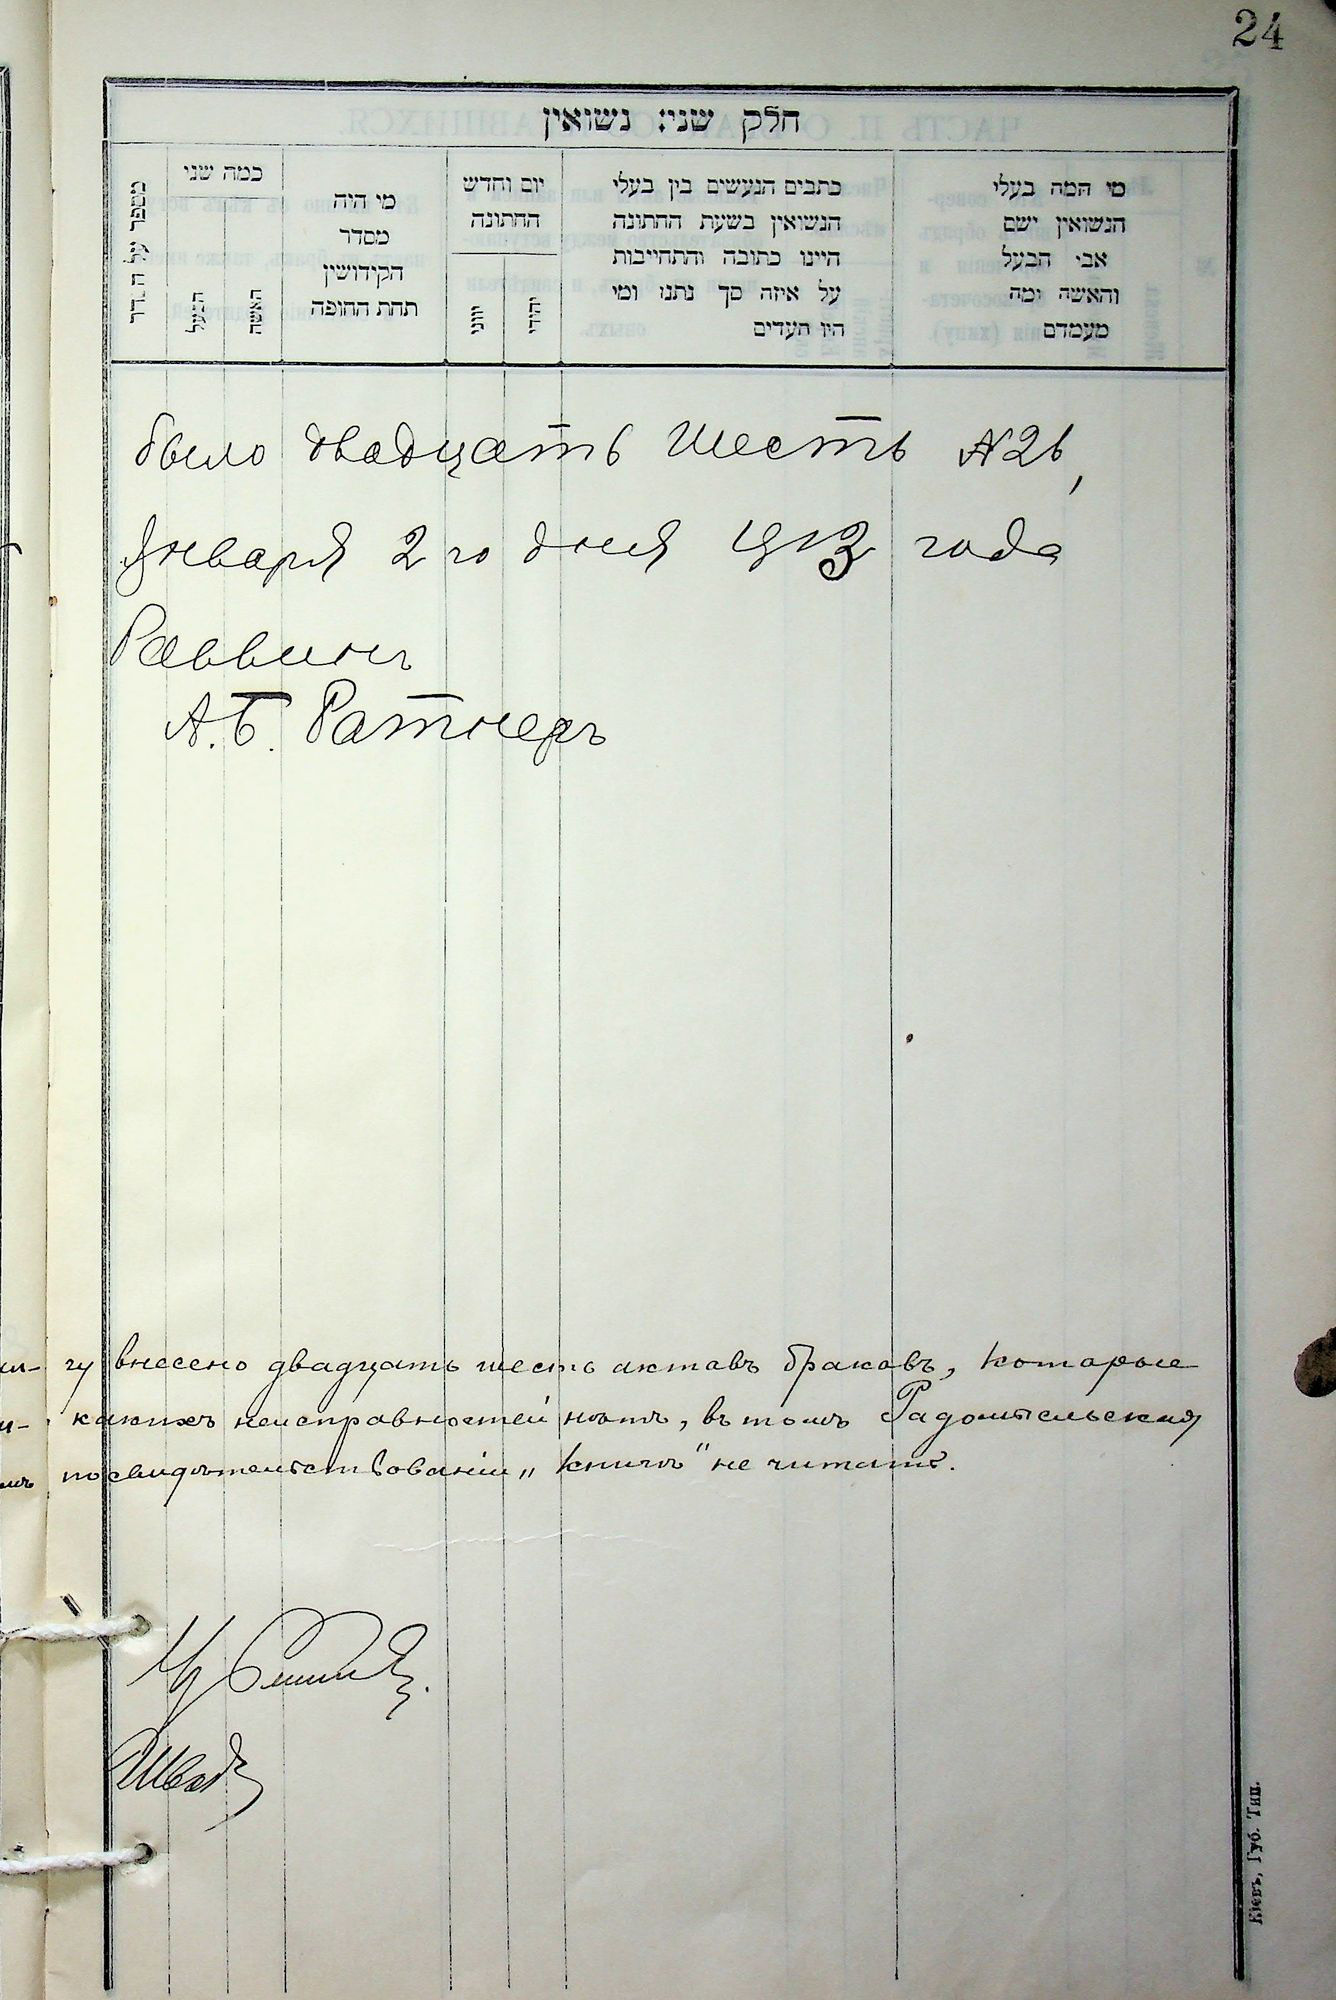 24
חלק שני: נשואין
מי המה בעלי הנשואין ישם אבי הבעל והאשה ומה מעמדם
כתבים הנעשים בין בעלי הנשואין בשעת החתונה היינו כתובה והתחייבות על איזה סך נתנו ומי היו העדים
יום וחדש החתונה
יהודי
יווני
מי היה מסדר הקידושין תחת החופה
כמה שני
האשה
הבעל
מספר על הסדר
было двадцать шесть №26,
Января 2го дня 1913 года
Раввинъ
А.Б. Ратнеръ
гу внесено двадцать шесть актовъ браковъ, которые
какихъ неисправностей нѣтъ, въ томъ Радомысльская
посвидѣтельствованіи „Книгъ" не читать.
Кіевъ, Губ. Тип.